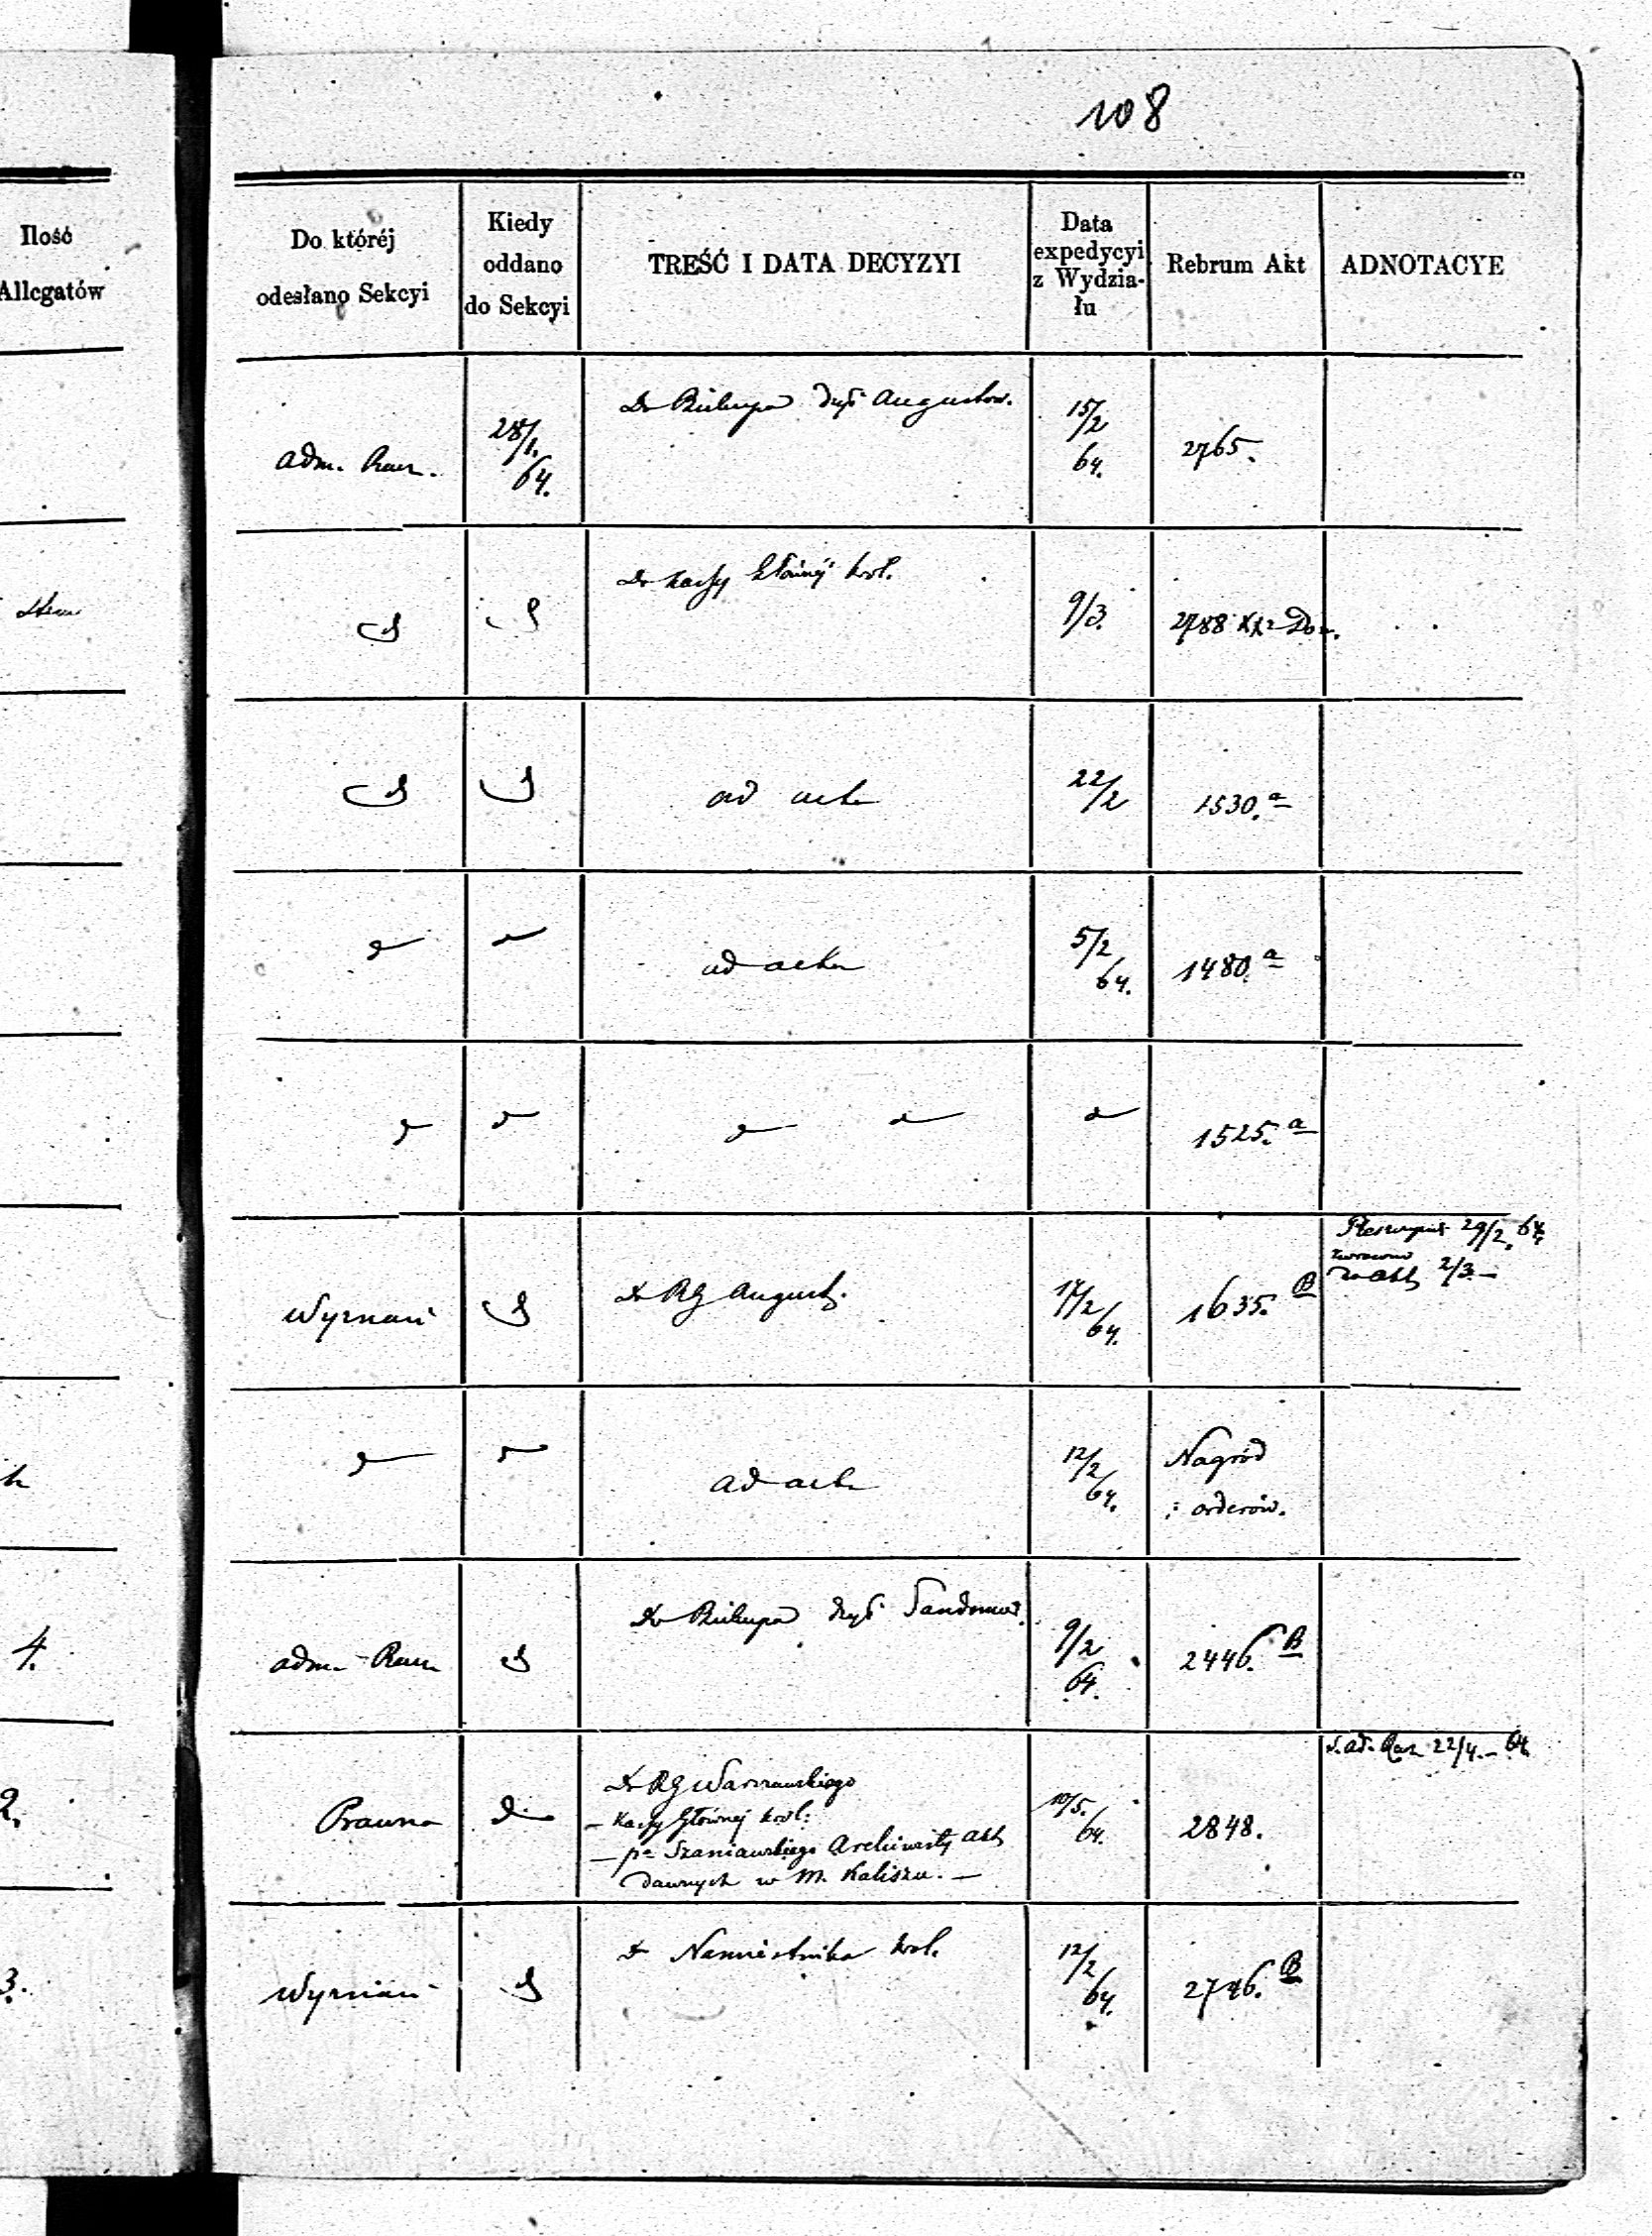 108
Ilość
Allegatów
Do któréj
odesłano Sekcyi
Kiedy
oddano
do Sekcyi
TREŚĆ I DATA DECYZYI
Data
expedycyi
z Wydzia-
łu
Rebrum Akt
ADNOTACYE
adm. Rac.
28/1.
64.
Do Biskupa dyś Augustow.
15/2
64.
2765.
Do Kassy Głównéj król.
9/3.
2788
ad acta
22/2
1530. a
ad acta
5/2
64.
1480. a
1525. a
Wyznań
Do RG August.
17/2
64.
1635. B
29/2. 64
do akt 2/3. —
ad acta
12/2
64.
Nagród
i orderów.
4.
adm. Rac.
Do Biskupa dyś Sandomir.
9/2
64.
2446. B
2.
Prawna
Do RG Warszawskiego
— Kassy Głównéj król:
— pa Szaniawskiego Archiwisty akt
dawnych w m. Kaliszu. —
10/5.
64.
2848.
22/4. — 64
3.
Wyznań
Do Namiestnika król.
12/2
64.
2746. B